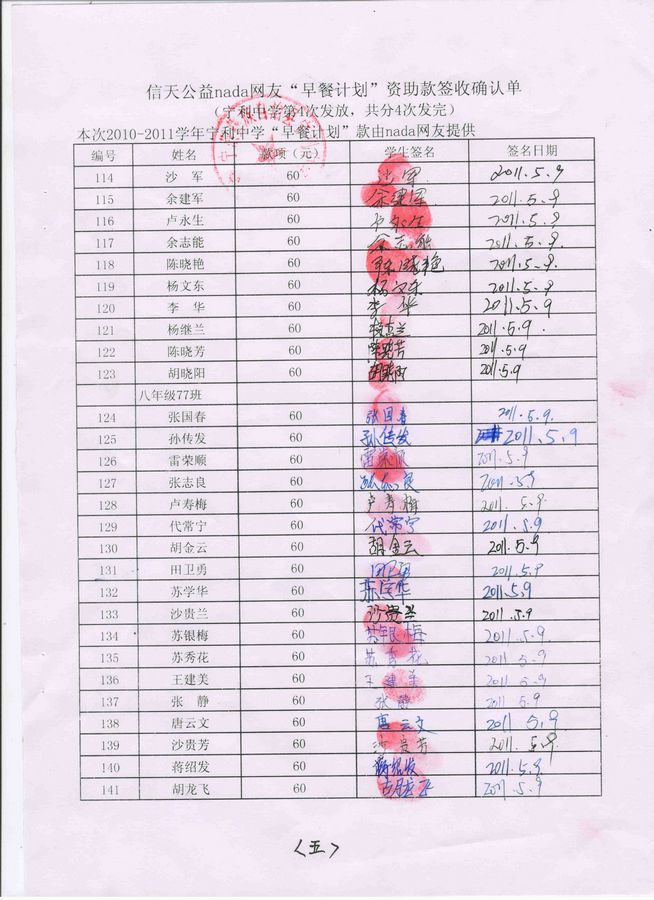 信天公益nada网友“早餐计划”资助款签收确认单
（宁利中学第4次发放，共分4次发完）
本次2010-2011学年宁利中学“早餐计划”款由nada网友提供
编号 姓名 款项（元） 学生签名 签名日期
114 沙 军 60 沙军 2011.5.9
115 余建军 60 余建军 2011.5.9
116 卢永生 60 卢永生 2011.5.9
117 余志能 60 余志能 2011.5.9
118 陈晓艳 60 陈晓艳 2011.5.9
119 杨文东 60 杨文东 2011.5.9
120 李 华 60 李华 2011.5.9
121 杨继兰 60 2011.5.9.
122 陈晓芳 60 陈晓芳 2011.5.9
123 胡晓阳 60 胡晓阳 2011.5.9
八年级77班
124 张国春 60 张国春 2011.5.9.
125 孙传发 60 孙传发 2011.5.9
126 雷荣顺 60 雷荣顺 2011.5.9
127 张志良 60 张志良 2011.5.9
128 卢寿梅 60 卢寿梅 2011.5.9
129 代常宁 60 代常宁 2011.5.9
130 胡金云 60 胡金云 2011.5.9
131 田卫勇 60 田卫勇 2011.5.9
132 苏学华 60 苏学华 2011.5.9
133 沙贵兰 60 沙贵兰 2011.5.9
134 苏银梅 60 苏银梅 2011.5.9
135 苏秀花 60 苏秀花 2011.5.9
136 王建美 60 王建美 2011.5.9
137 张 静 60 张静 2011.5.9
138 唐云文 60 唐云文 2011.5.9
139 沙贵芳 60 沙贵芳 2011.5.9
140 蒋绍发 60 蒋绍发 2011.5.9
141 胡龙飞 60 胡龙飞 2011.5.9
<五>